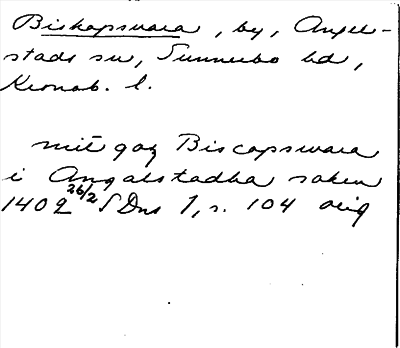 Biskapswara, by, Angel-
stads sn, Sunnerbo hd,
Kronob. l.
mit goz Biscapswara
i Angalstadha soken
1402 26/2 SDns 1, s. 104 orig